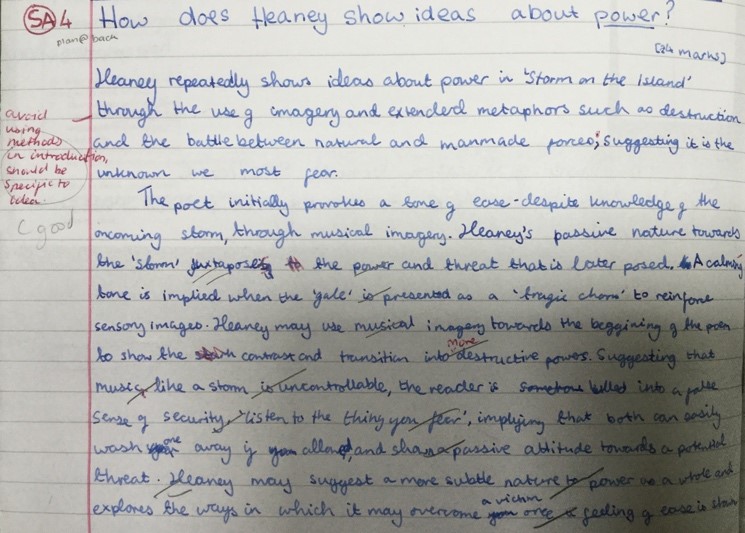 SA 4 How does Heaney show ideas about power?
plan @ back
[24 marks]
Heaney repeatedly shows ideas about power in 'Storm on the Island'
through the use of imagery and extended metaphors such as destruction
and the battle between natural and manmade forces; suggesting it is the
unknown we most fear.
avoid
using
methods
in introduction,
should be
specific to
idea.
(good
The poet initially provokes a tone of ease - despite knowledge of the
oncoming storm, through musical imagery. Heaney's passive nature towards
the 'storm' juxtaposes the power and threat that is later posed. A calming
tone is implied when the 'gale' is presented as a 'tragic chorus' to reinforce
sensory images. Heaney may use musical imagery towards the beggining of the poem
to show the contrast and transition into more destructive powers. Suggesting that
music, like a storm is uncontrollable, the reader is somehow lulled into a false
sense of security, 'listen to the thing you fear', implying that both can easily
wash one away if allowed, and share a passive attitude towards a potential
threat. Heaney may suggest a more subtle nature to power as a whole and
explores the ways in which it may overcome a victim feeling of ease is